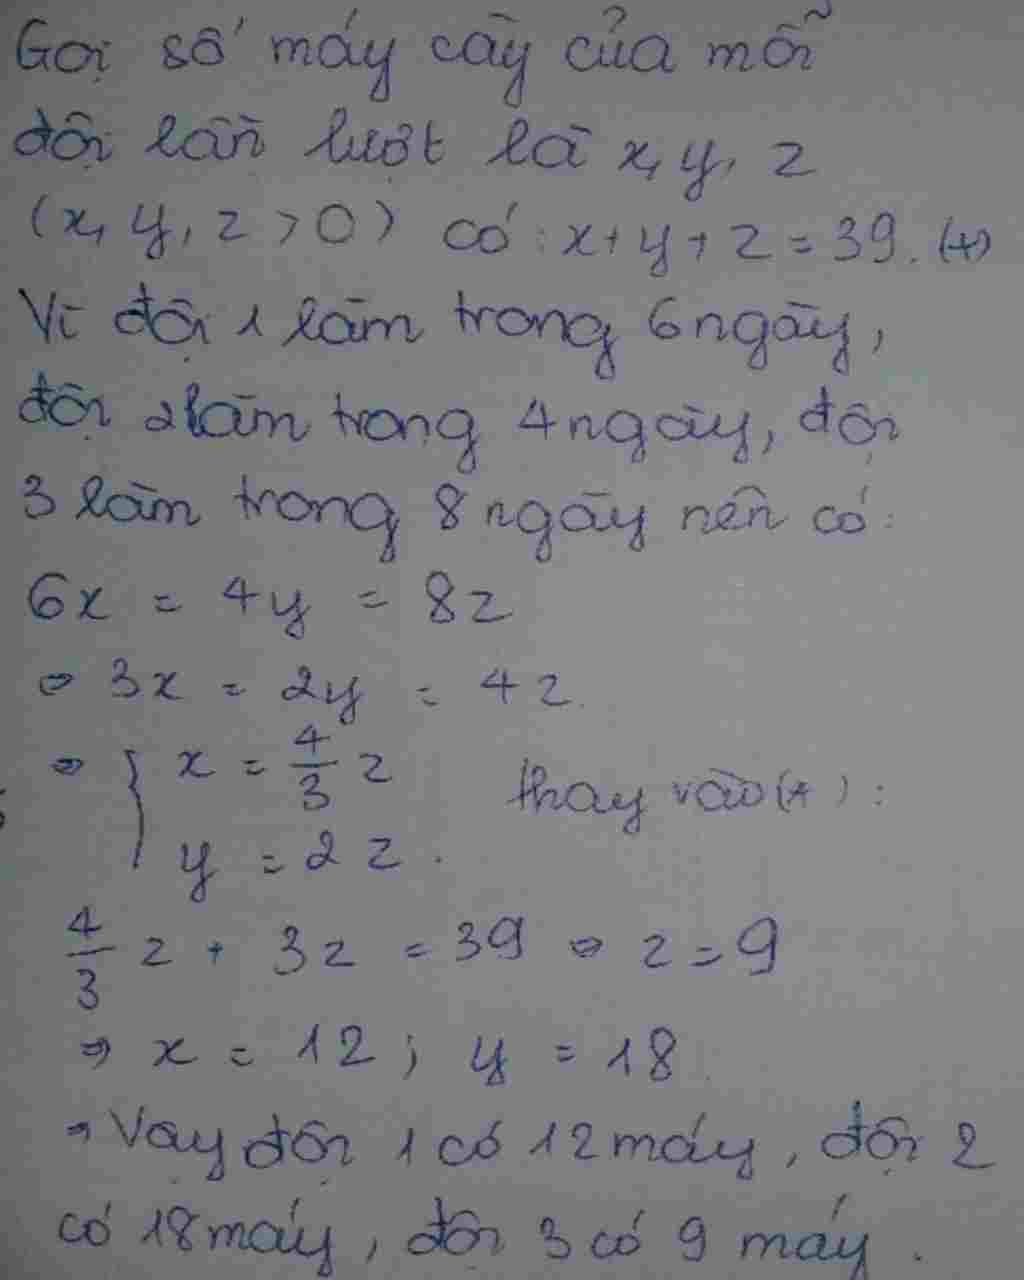 Gọi số máy cày của mỗi
đội lần lượt là x, y, z
(x, y, z > 0) có: x + y + z = 39. (*)
Vì đội 1 làm trong 6 ngày,
đội 2 làm trong 4 ngày, đội
3 làm trong 8 ngày nên có:
6x = 4y = 8z
⇒ 3x = 2y = 4z.
⇒ { x = 4/3 z thay vào (*):
y = 2z.
4/3 z + 3z = 39 ⇒ z = 9
⇒ x = 12; y = 18
⇒ Vậy đội 1 có 12 máy, đội 2
có 18 máy, đội 3 có 9 máy.